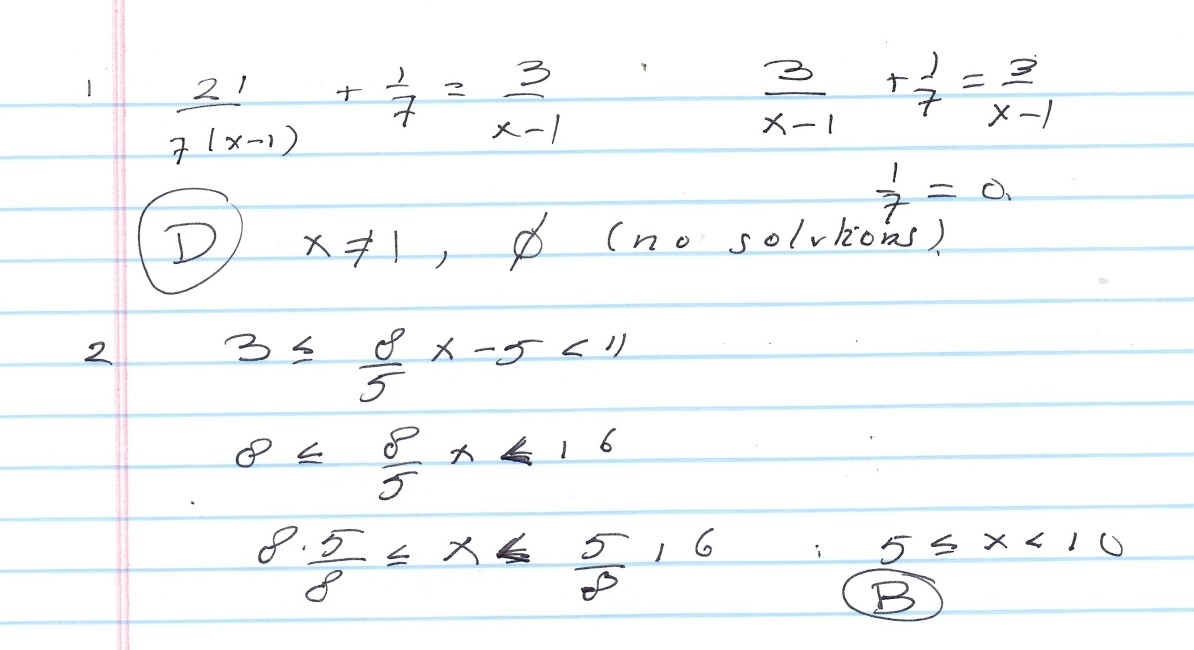 1 21/7(x-1) + 1/7 = 3/x-1 3/x-1 + 1/7 = 3/x-1
1/7 = 0.
D x ≠ 1, ∅ (no solutions)
2 3 ≤ 8/5 x - 5 < 11
8 ≤ 8/5 x < 16
8·5/8 ≤ x < 5/8 16 ; 5 ≤ x < 10
B